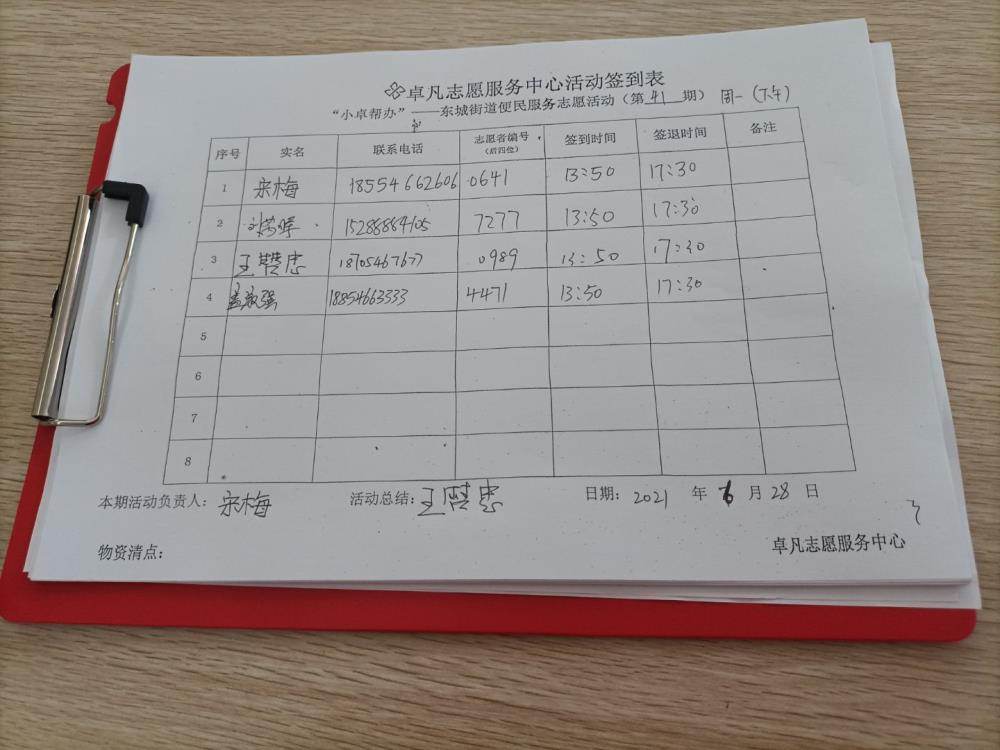 卓凡志愿服务中心活动签到表
“小卓帮办”——东城街道便民服务志愿活动（第 41 期） 周一（下午）
序号 实名 联系电话 志愿者编号（后四位） 签到时间 签退时间 备注
1 宋梅 18554662606 0641 13:50 17:30
2 15288884105 7277 13:50 17:30
3 王赞忠 18705467677 0989 13:50 17:30
4 孟敏强 18854663333 4471 13:50 17:30
5
6
7
8
本期活动负责人：宋梅 活动总结：王赞忠 日期：2021 年 6 月 28 日
物资清点： 卓凡志愿服务中心